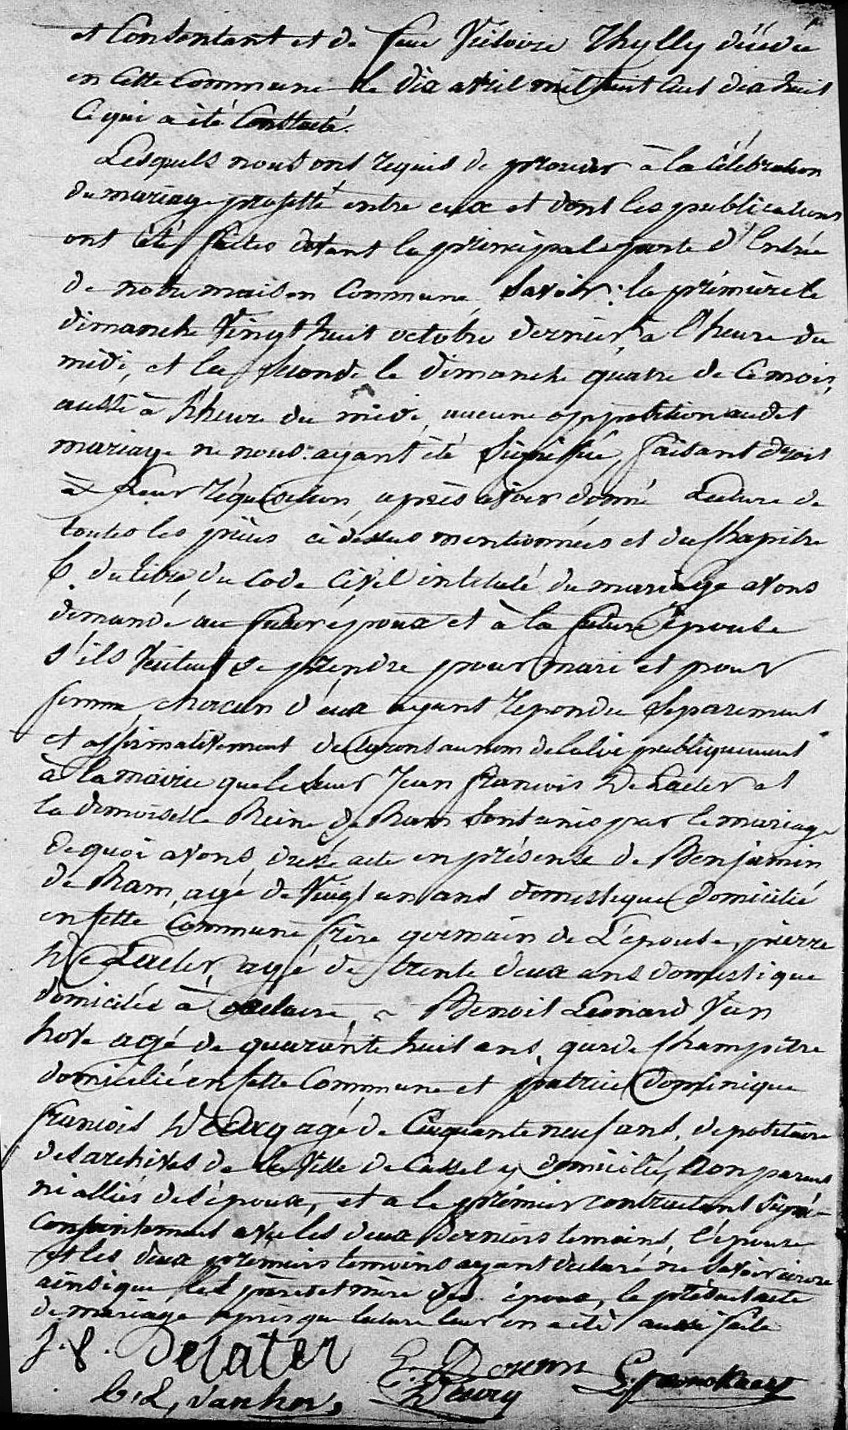 et Consentant et de feue Victoire Thylly décédée
en cette Commune le dix avril mil huit cent dix huit
Ce qui a été Constaté.
Lesquels nous ont requis de procéder à la célébration
du mariage projetté entre eux et dont les publications
ont été faites devant la principale porte d'Entrée
de notre maison Commune, Savoir: la première le
dimanche Vingt huit octobre dernier, à l'heure du
midi, et la seconde le dimanche quatre de ce mois,
aussi à l'heure du midi, aucune opposition audit
mariage ne nous ayant été Signifiée, faisant droit
à Leur réquisition, après avoir donné Lecture de
toutes les pièces ci dessus mentionnées et du Chapitre
6. du titre du Code Civil intitulé du mariage avons
demandé au futur époux et à la future épouse
s'ils veulent se prendre pour mari et pour
femme, chacun d'eux ayant répondu séparement
et affirmativement declarons au nom de la loi publiquement
à la mairie que le sieur Jean francois De Later et
la demoiselle Reine de Ram Sont unis par le mariage
de quoi avons dressé acte en présence de Benjamin
de Ram, agé de Vingt un ans domestique domicilié
en cette Commune frère germain de L'épouse, pierre
De Later, agé de trente deux ans domestique
domicilié à Benoit Léonard Van
hove agé de quarante huit ans, garde Champêtre
domicilié en cette Commune et patrice Dominique
francois agé de Cinquante neuf ans, depositaire
des archives de la Ville de Cassel y domicilié, non parens
ni alliés des époux, et a le premier contractant Signé
Conjointement avec les deux derniers temoins, l'épouse
et les deux premiers temoins ayant declaré ne savoir écrire
ainsi que les père et mère des époux, le présent acte
de mariage après que lecture leur en a été aussi faite
J. f. Delater
B. L, vanhove